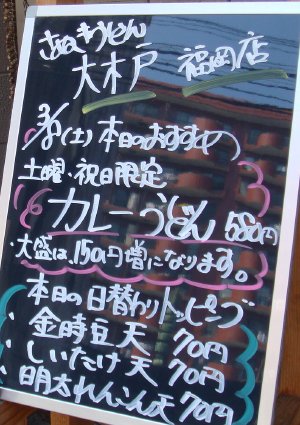 さぬきうどん
大木戸 福岡店
3/6(土)本日のおすすめ
土曜・祝日限定
カレーうどん 580円
・大盛は、150円増になります。
本日の日替わりトッピング
・金時豆天 70円
・しいたけ天 70円
・明太れんこん天 70円